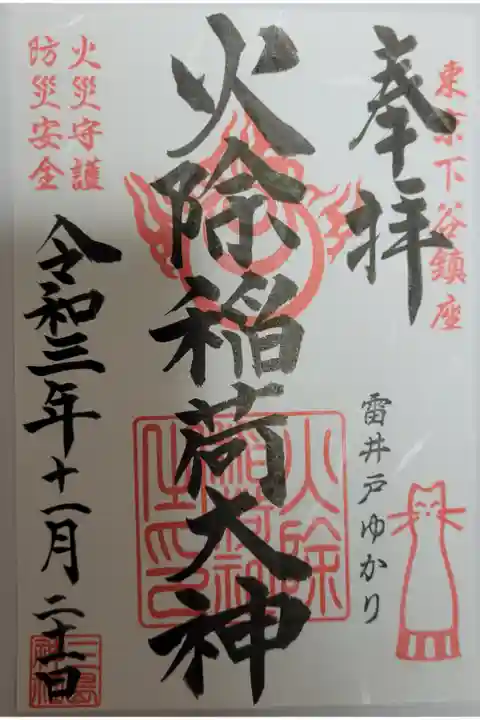 東京下谷鎮座
奉拝
雷井戸ゆかり
火除稲荷大神
火除
稲荷神
社之印
火災守護
防災安全
令和三年十一月二十一日
三島
神社